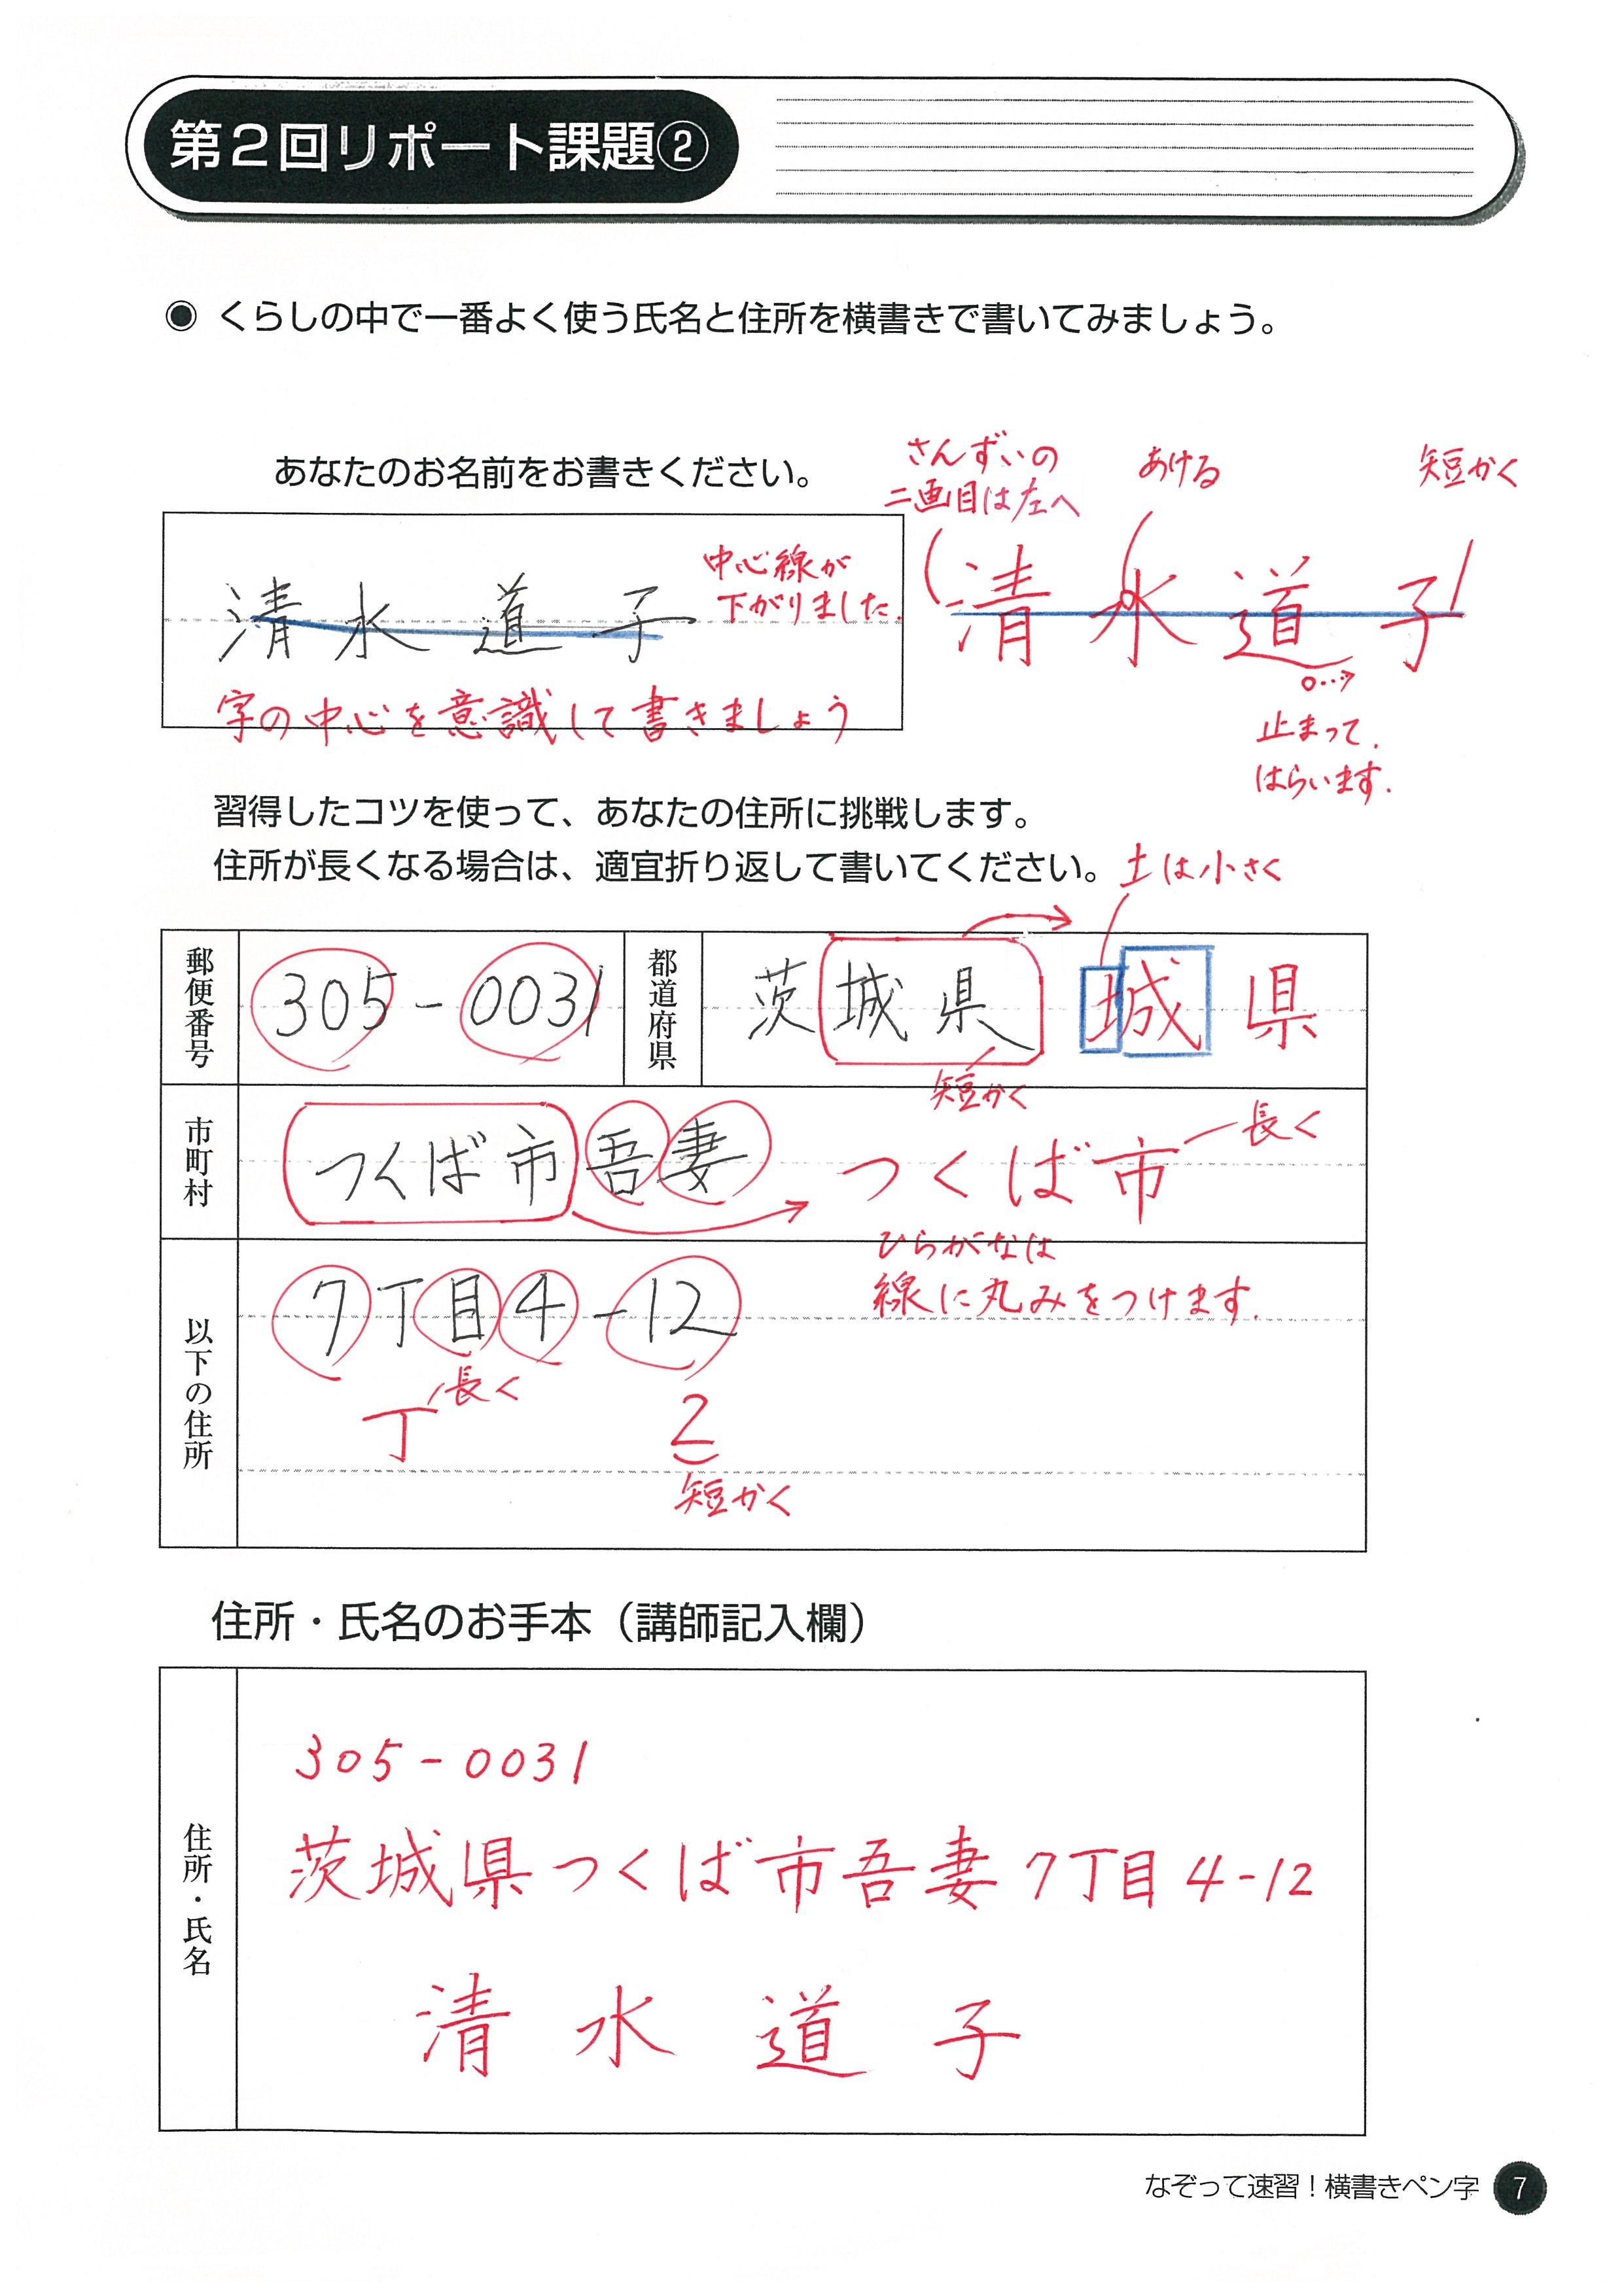 第2回リポート課題②
◉ くらしの中で一番よく使う氏名と住所を横書きで書いてみましょう。
あなたのお名前をお書きください。
さんずいの
二画目は左へ
あける
短かく
清水 道子
中心線が
下がりました.
清水道子
字の中心を意識して書きましょう
止まって.
はらいます.
習得したコツを使って、あなたの住所に挑戦します。
住所が長くなる場合は、適宜折り返して書いてください。
土は小さく
郵便番号
305-0031
都道府県
茨城県
城県
短かく
市町村
つくば市吾妻
つくば市
長く
ひらがなは
線に丸みをつけます.
以下の住所
7丁目4-12
丁
長く
2
短かく
住所・氏名のお手本（講師記入欄）
住所・氏名
305-0031
茨城県つくば市吾妻7丁目4-12
清水道子
なぞって速習！横書きペン字 7